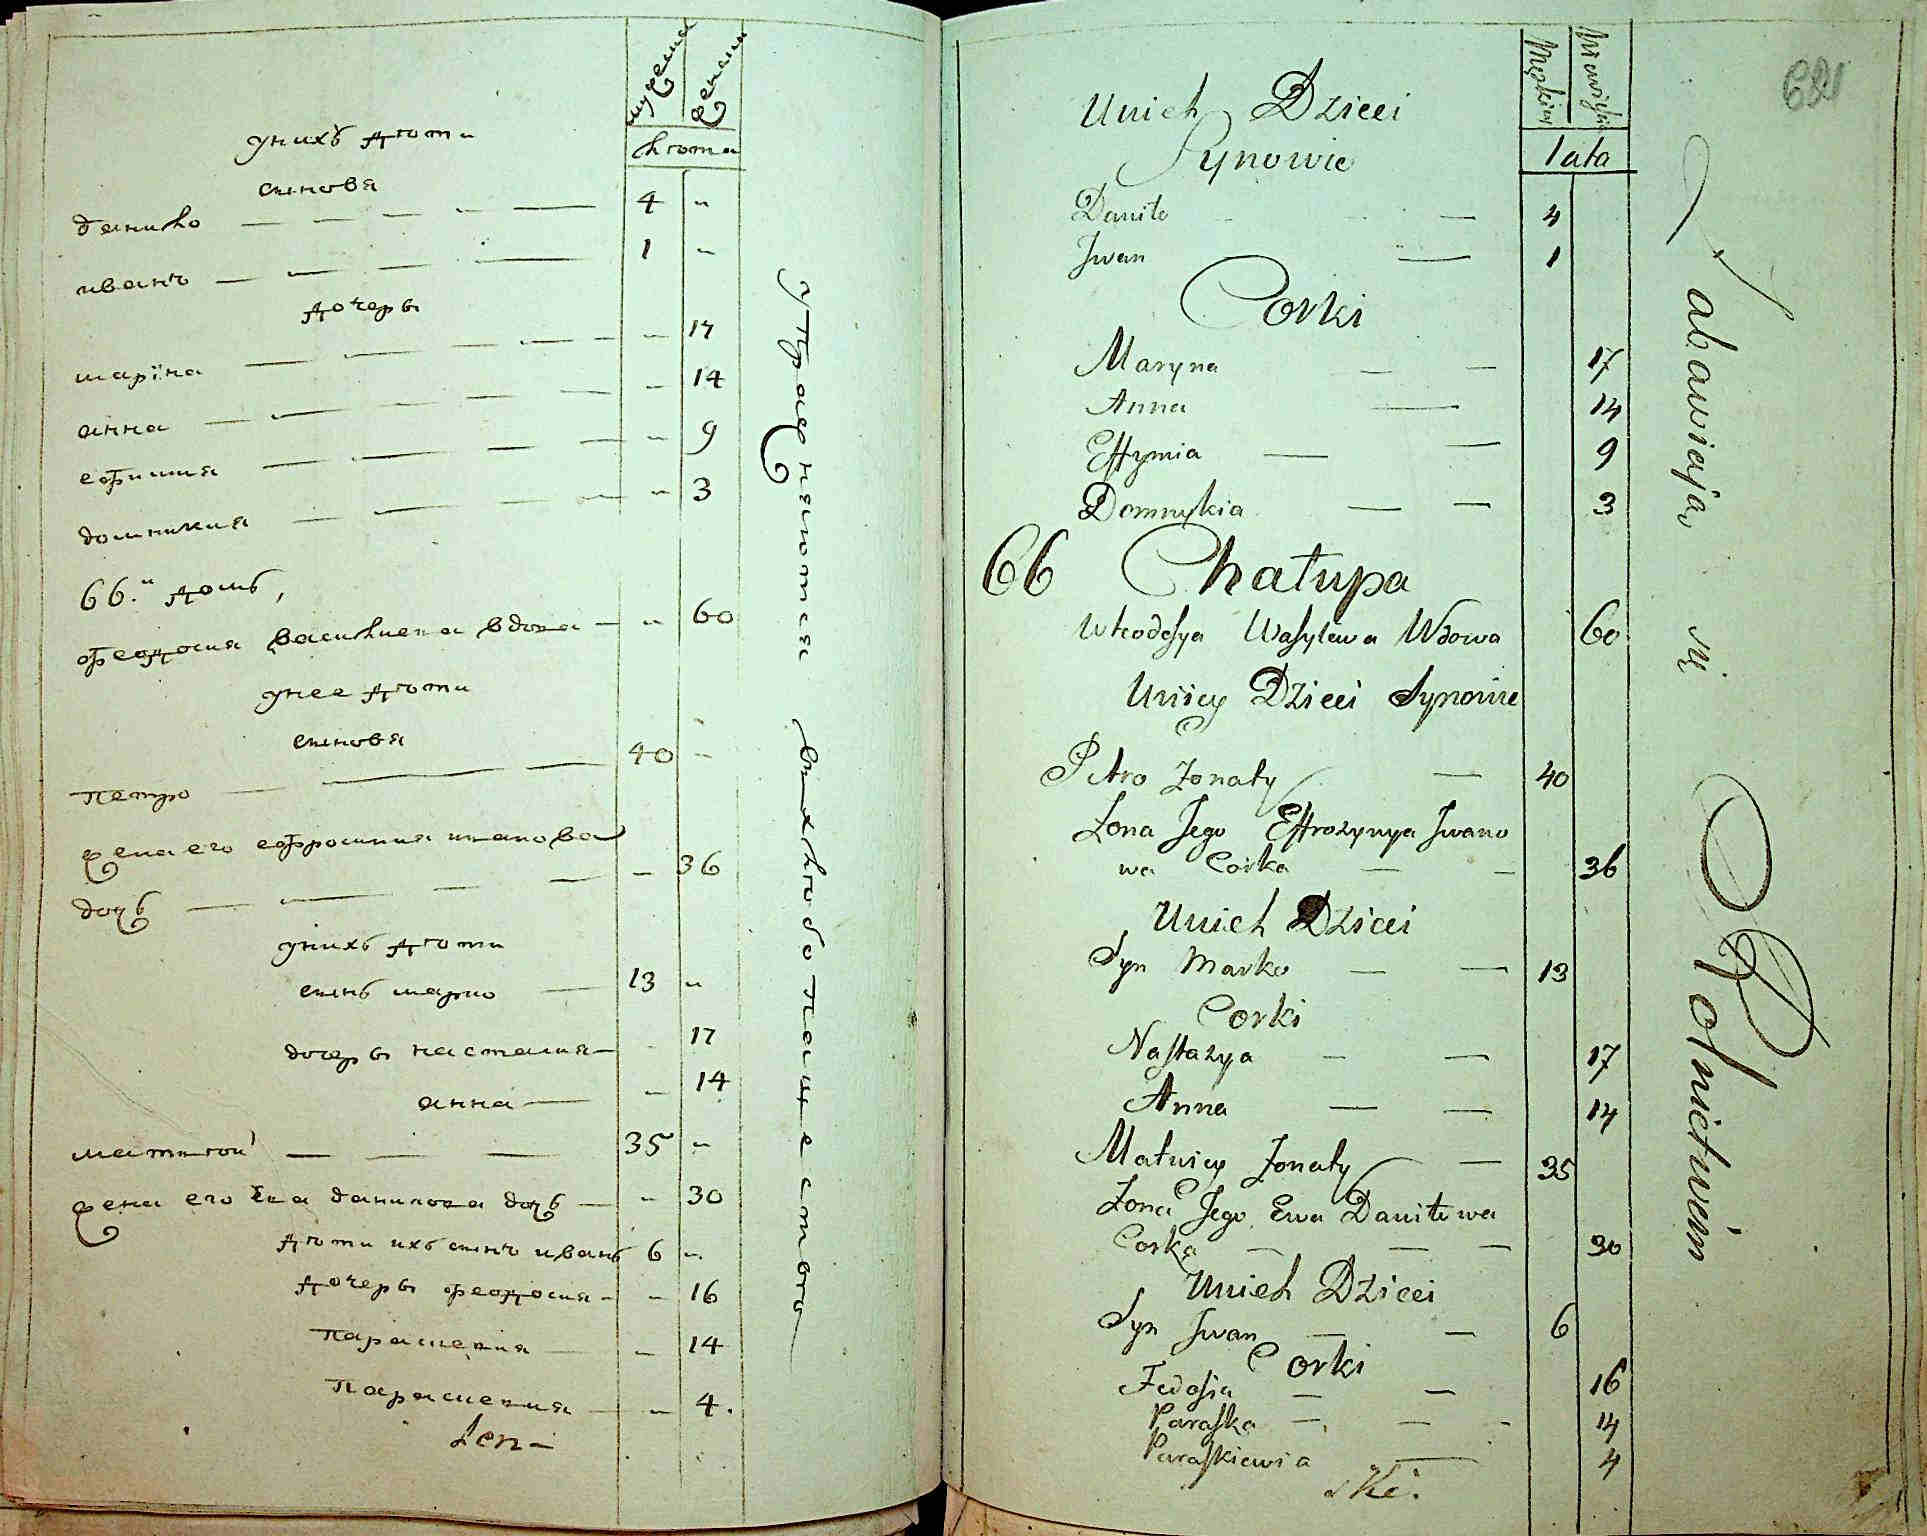 мужеска
женска
лѣта
у нихъ дѣти
синовя
данило — — — — — 4 „
иванъ — — — — 1 „
дочеры
марїна — — — — — „ 17
анна — — — — — „ 14
ефимия — — — — — „ 9
домникия — — — — „ 3
66.й домъ,
феодосия василиева вдова — „ 60
у нее дѣти
синовя
петро — — — — 40 „
жена его ефросиния иванова
дочь — — — — „ 36
у нихъ дѣти
синъ марко — 13 „
дочеры настасия — „ 17
анна — „ 14
матвѣй — — — 35 „
жена его Ева данилова дочь — „ 30
дѣти ихъ синъ иванъ 6 „
дочеры феодосия — „ 16
параскевия — „ 14
параскевия — „ 4.
упражняются в хлѣбопашество
681
Męzkiey
lata
Unich Dzieci
Synowie
Daniło — 4
Jwan — 1
Corki
Maryna — — 17
Anna — 14
Effymia — — 9
Domnykia — — 3
66 Chałupa
Wteodosya Wasylewa Wdowa 60
Uniey Dzieci Synowie
Petro Zonaty — 40
Zona Jego Effrozynya Jwano
wa Corka — — 36
Unich Dzieci
Syn Marko — — 13
Corki
Nastazya — — 17
Anna — — 14
Matwiey Zonaty — 35
Zona Jego Ewa Daniłowa
Corka — — — 30
Unich Dzieci
Syn Jwan — — 6
Corki
Fedosia — — 16
Paraska — — - 14
Paraskiewia — 4
ski.
Zabawiaią się Rolnictwim